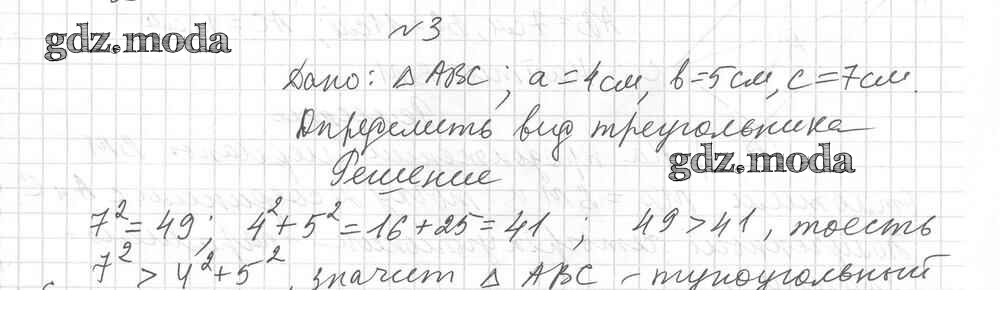 №3
gdz.moda
Дано: △ABC; a=4см, b=5см, c=7см.
Определить вид треугольника
gdz.moda
Решение
7²=49; 4²+5²=16+25=41; 49>41, тоесть
7²>4²+5², значит △ ABC - тупоугольный